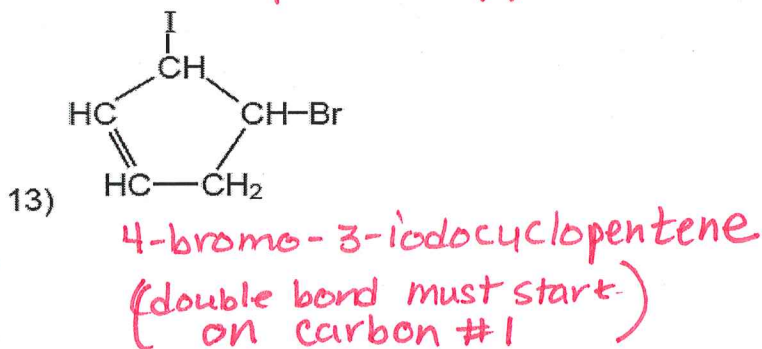 I
CH
HC CH–Br
HC CH₂
13)
4-bromo-3-iodocyclopentene
(double bond must start
on carbon #1)